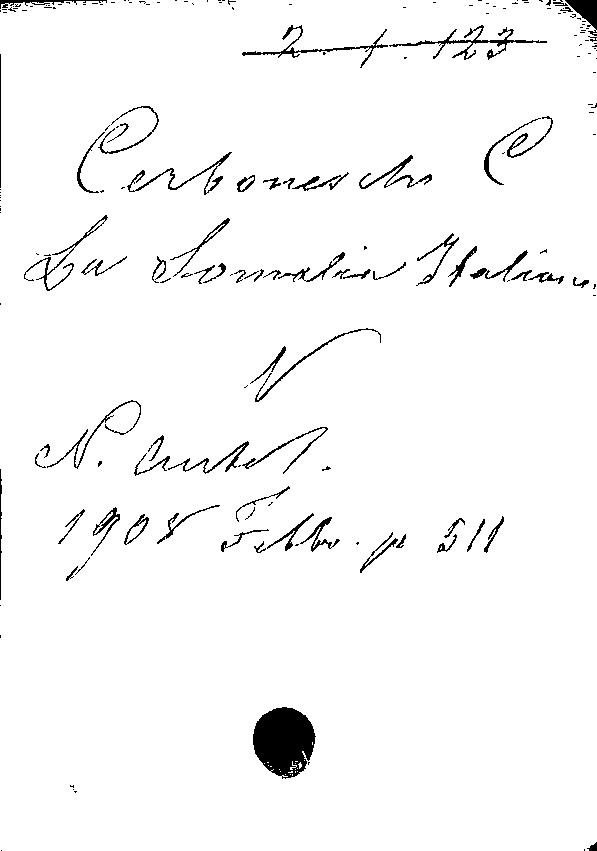 2. 1. 123
Cerboneschi C
La Somalia Italiana
V
N. Antol.
1908 Febbo. p 511